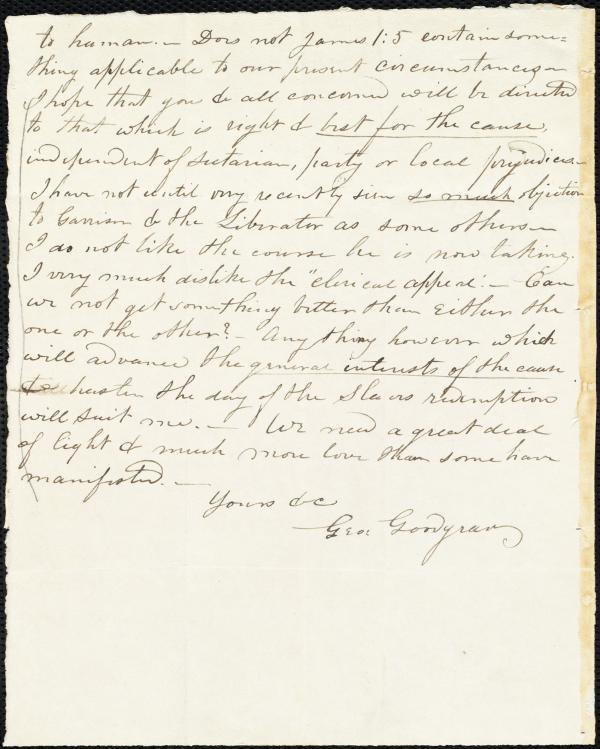 to human.— Does not James 1:5 contain some=
thing applicable to our present circumstances—
I hope that you & all concerned will be directed
to that which is right & best for the cause,
independent of sectarian, party or local prejudices—
I have not until very recently seen so much objection
to Garrison & the Liberator as some others—
I do not like the course he is now taking.
I very much dislike the "clerical appeal".— Can
we not get something better than either the
one or the other?— Any thing however which
will advance the general interests of the cause
& hasten the day of the Slaves redemption
will suit me.— We need a great deal
of light & much more love than some have
manifested.—
Yours &c
Geo.